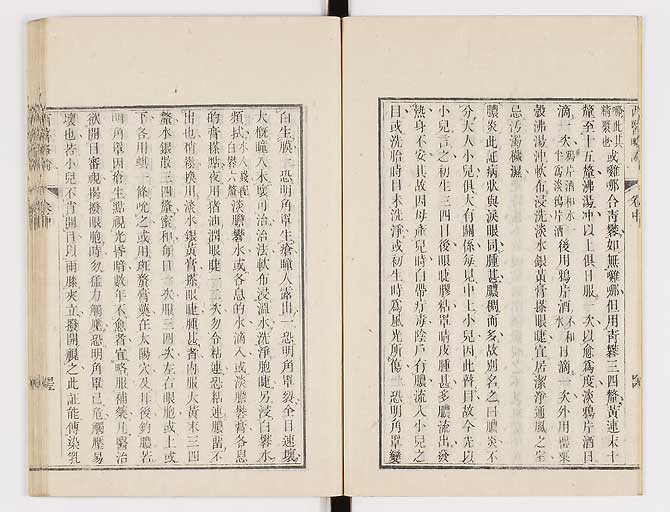 西醫略論
卷中
或雞𨠑合青礬如無雞𨠑但用青礬三四釐黃連末十
釐至十五釐沸湯冲以上俱日服一次以愈爲度淡鴉片酒日
滴一次後用鴉片酒日滴一次外用罌粟
殼沸湯冲軟布浸洗淡水銀黃膏搽眼睫宜居潔淨通風之室
忌汚濁穢濕
膿炎此証病狀與淚眼同腫甚膿稠而多故別名之曰膿炎不
分大人小兒俱大有關係每見中土小兒因此瞽目故今先以
小兒言之初生三四日後眼睫膠粘罩睛皮腫甚多膿流出發
熱身不安其故因母產兒時白帶疔毒陰戶有膿流入小兒之
目或洗胎時目未洗淨或初生時爲風光所傷一恐明角罩變
白生膜一恐明角罩生瘡瞳人露出一恐明角罩裂全目速壞
大慨瞳人未壞可治治法軟布浸溫水洗淨胞睫另浸白礬水
頻拭淡膽礬水或各息的水滴入或淡膽礬膏各息
的膏搽點夜用猪油潤眼睫一三勿令粘連恐粘連膿留不
出也稍後換用淡水銀黃膏搽眼睫腫甚者內服大黃末三四
釐水銀散三四釐蜜和每日一次服三四次左右眼胞或上或
下各用蜞一條吮之或用斑蝥膏藥在太陽穴及耳後釣膿若
明角罩因瘡生點視光昏暗數年不愈者宜略服補藥凡醫治
欲開目審視揭撥眼胞時勿猛力觸壓恐明角罩已危觸壓易
壞也若小兒不肯開目以兩膝夾立撥開視之此証能傳染乳
西醫略論
卷中